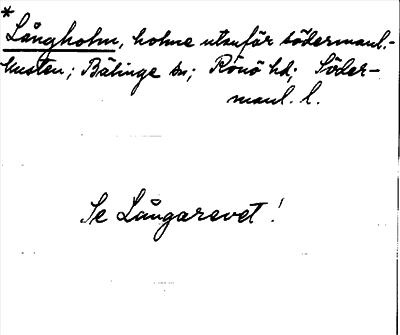 *
Långholm, holme utanför södermanl.-
kusten; Bälinge sn; Rönö hd; Söder-
manl. l.
Se Långarevet!